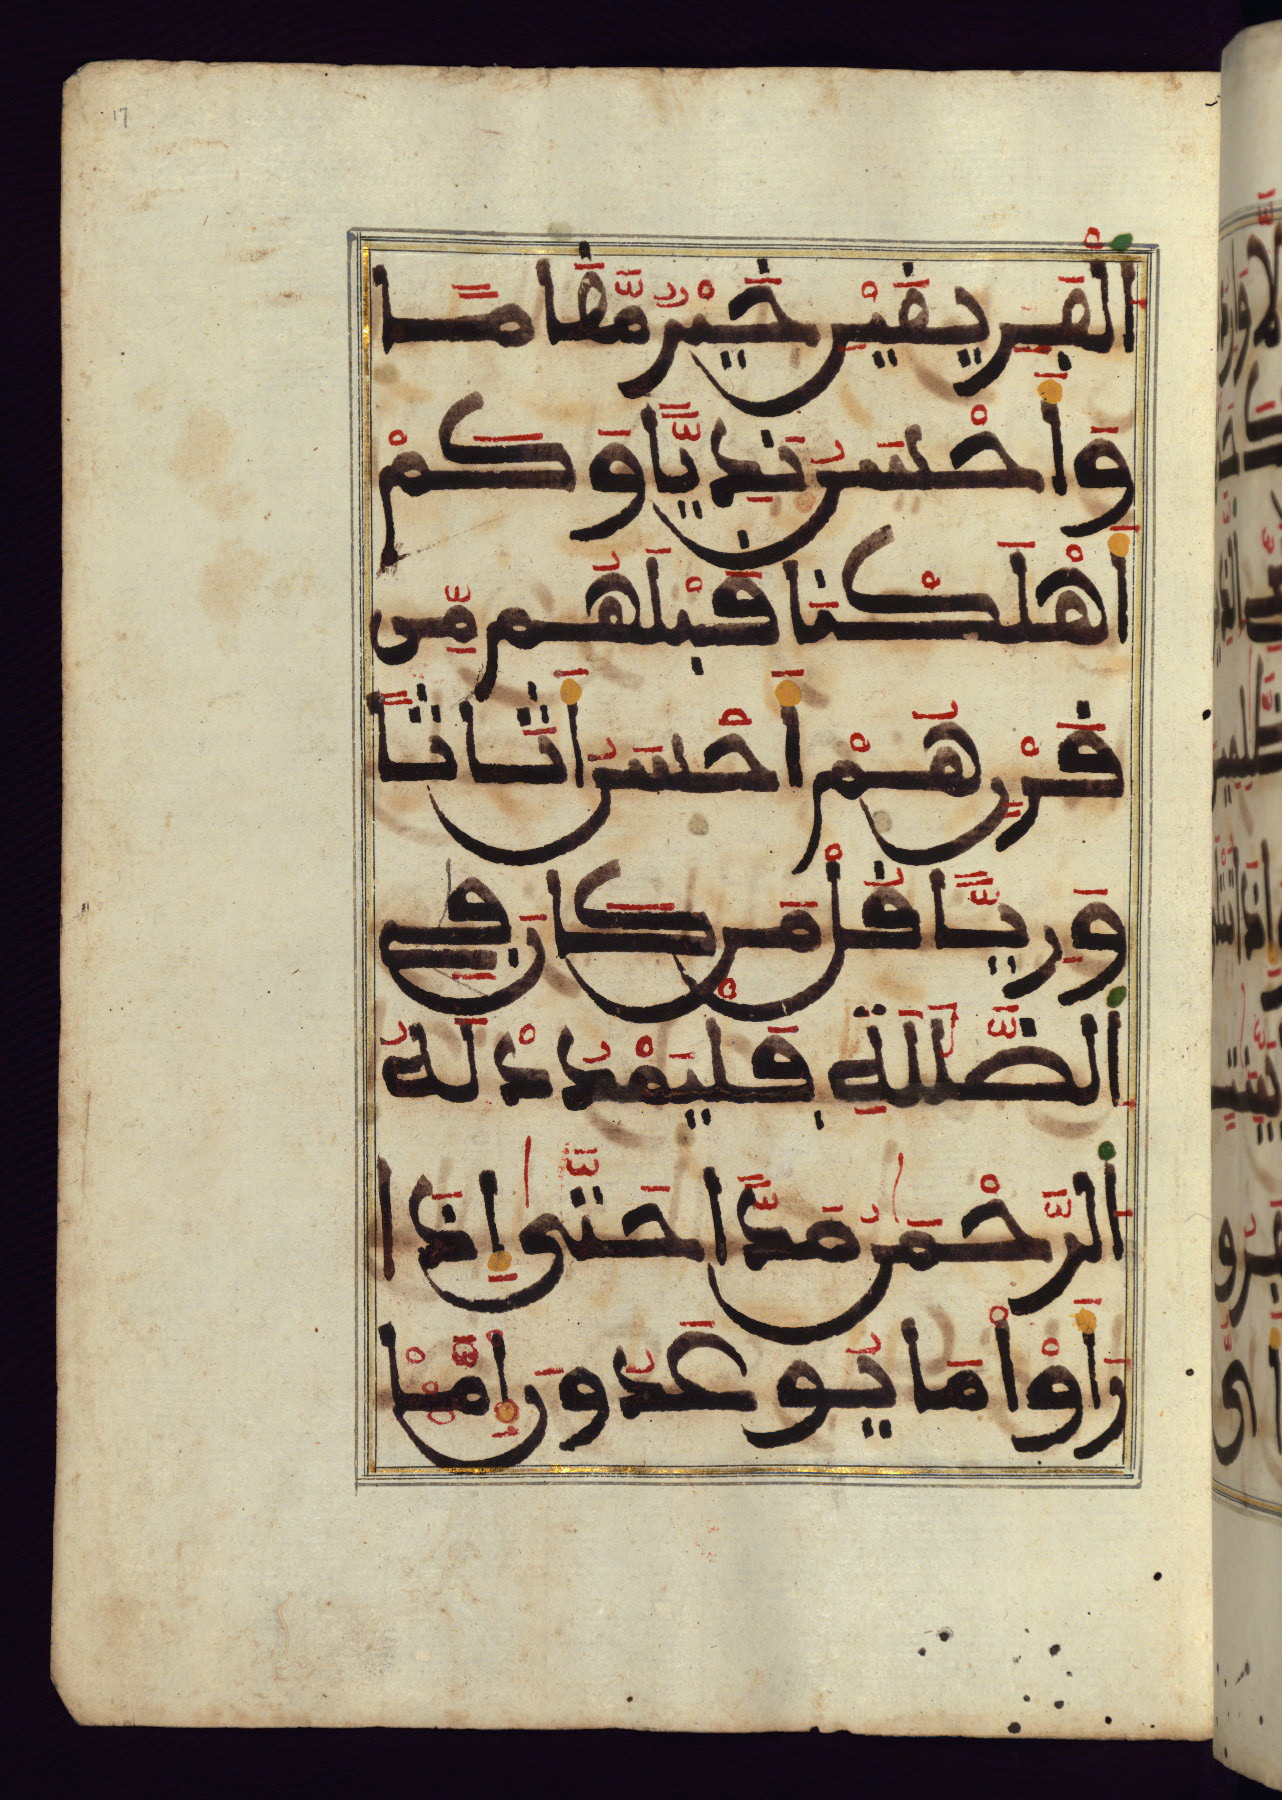 17
اَ۬لْفَرِيقَيْنِ خَيْرٌ مَّقَامًا
وَأَحْسَنُ نَدِيًّا وَكَمْ
أَهْلَكْنَا قَبْلَهُم مِّن
قَرْنٍ هُمْ أَحْسَنُ أَثَاثًا
وَرِيًّا قُلْ مَن كَانَ فِي
اِ۬لضَّلَٰلَةِ فَلْيَمْدُدْ لَهُ
اُ۬لرَّحْمَٰنُ مَدًّا حَتَّىٰ إِذَا
رَأَوْاْ مَا يُوعَدُونَ إِمَّا